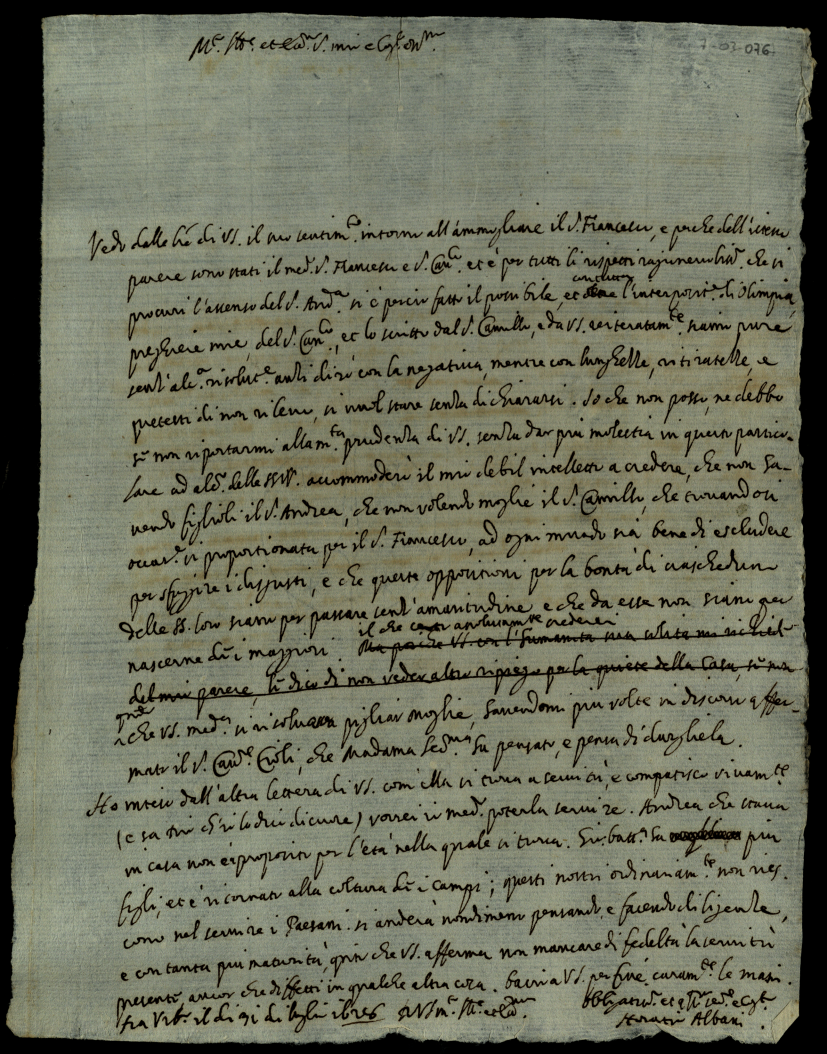 7-03-076
M.e Ill.e et Ecc.m S. mio e Cog.o oss.mo
Vedo dalle l're di VS. il suo sentim.to intorno all'ammogliare il S. Francesco, e perche dell'istesso
parere sono stati il med.o S. Francesco e S. Can.co et è per tutti li rispetti ragionevoliss.o che si
procuri l'assenso del S. And.a si è perciò fatto il possibile, et l'interposit.e di Olimpia,
preghiere mie, del S. Can.co, et lo scritto dal S. Camillo, e da VS. reiteratam.te siamo pure
senz'alc.a risolut.e anzi direi con la negativa, mentre con lunghezze, ritiratezze, e
pretesti di non rilievo, si vuol stare senza dichiararsi. Io che non posso, ne debbo
se non riportarmi alla m.ta prudenza di VS. senza dar più molestia in questo partico-
lare ad alc.o delle SS.VV. accommoderò il mio debil intelletto a credere, che non ha-
vendo figlioli il S. Andrea, che non volendo moglie il S. Camillo, che trovandosi
occas.e sì proportionata per il S. Francesco, ad ogni modo sia bene di escludere
per sfuggire i disgusti, e che queste oppositioni per la bontà di ciascheduno
delle SS. loro siano per passare senz'amaritudine e che da esse non siano per
nascerne de i maggiori. il che assolutam.te crederei
Ma perche VS. con l'humanità sua solita mi richiede
del mio parere, le dico di non veder altro ripiego per la quiete della Casa, se non
che VS. med.a si risolva pigliar moglie, havendomi più volte in discorso affer-
mato il S. Cav.re Cioli, che Madama Ser.ma ha pensato, e pensa di dargliela.
Ho inteso dall'altra lettera di VS. com'ella si trova a servitù, e compatisco vivam.te
(e sa Dio ch'io lo dico di cuore) vorrei io med.o poterla servire. Andrea che stava
in casa non è a proposito per l'età nella quale si trova. Gio: batt.a ha più
figli, et è ritornato alla coltura de i campi; questi nostri ordinariam.te non ries-
cono nel servire i Paesani. si anderà nondimeno pensando, e facendo diligenze,
e con tanta più maturità, q.to che VS. afferma non mancare di fedeltà la servitù
presente, ancor che diffetti in qualche altra cosa. bacio a VS. per fine caram.te le mani.
Di Urb.o il di 31 di luglio 1626 D VS m.to Ill.e et Ecc.ma
Obbligatiss.o et aff.mo ser.re e Cog.to
Horatio Albani.